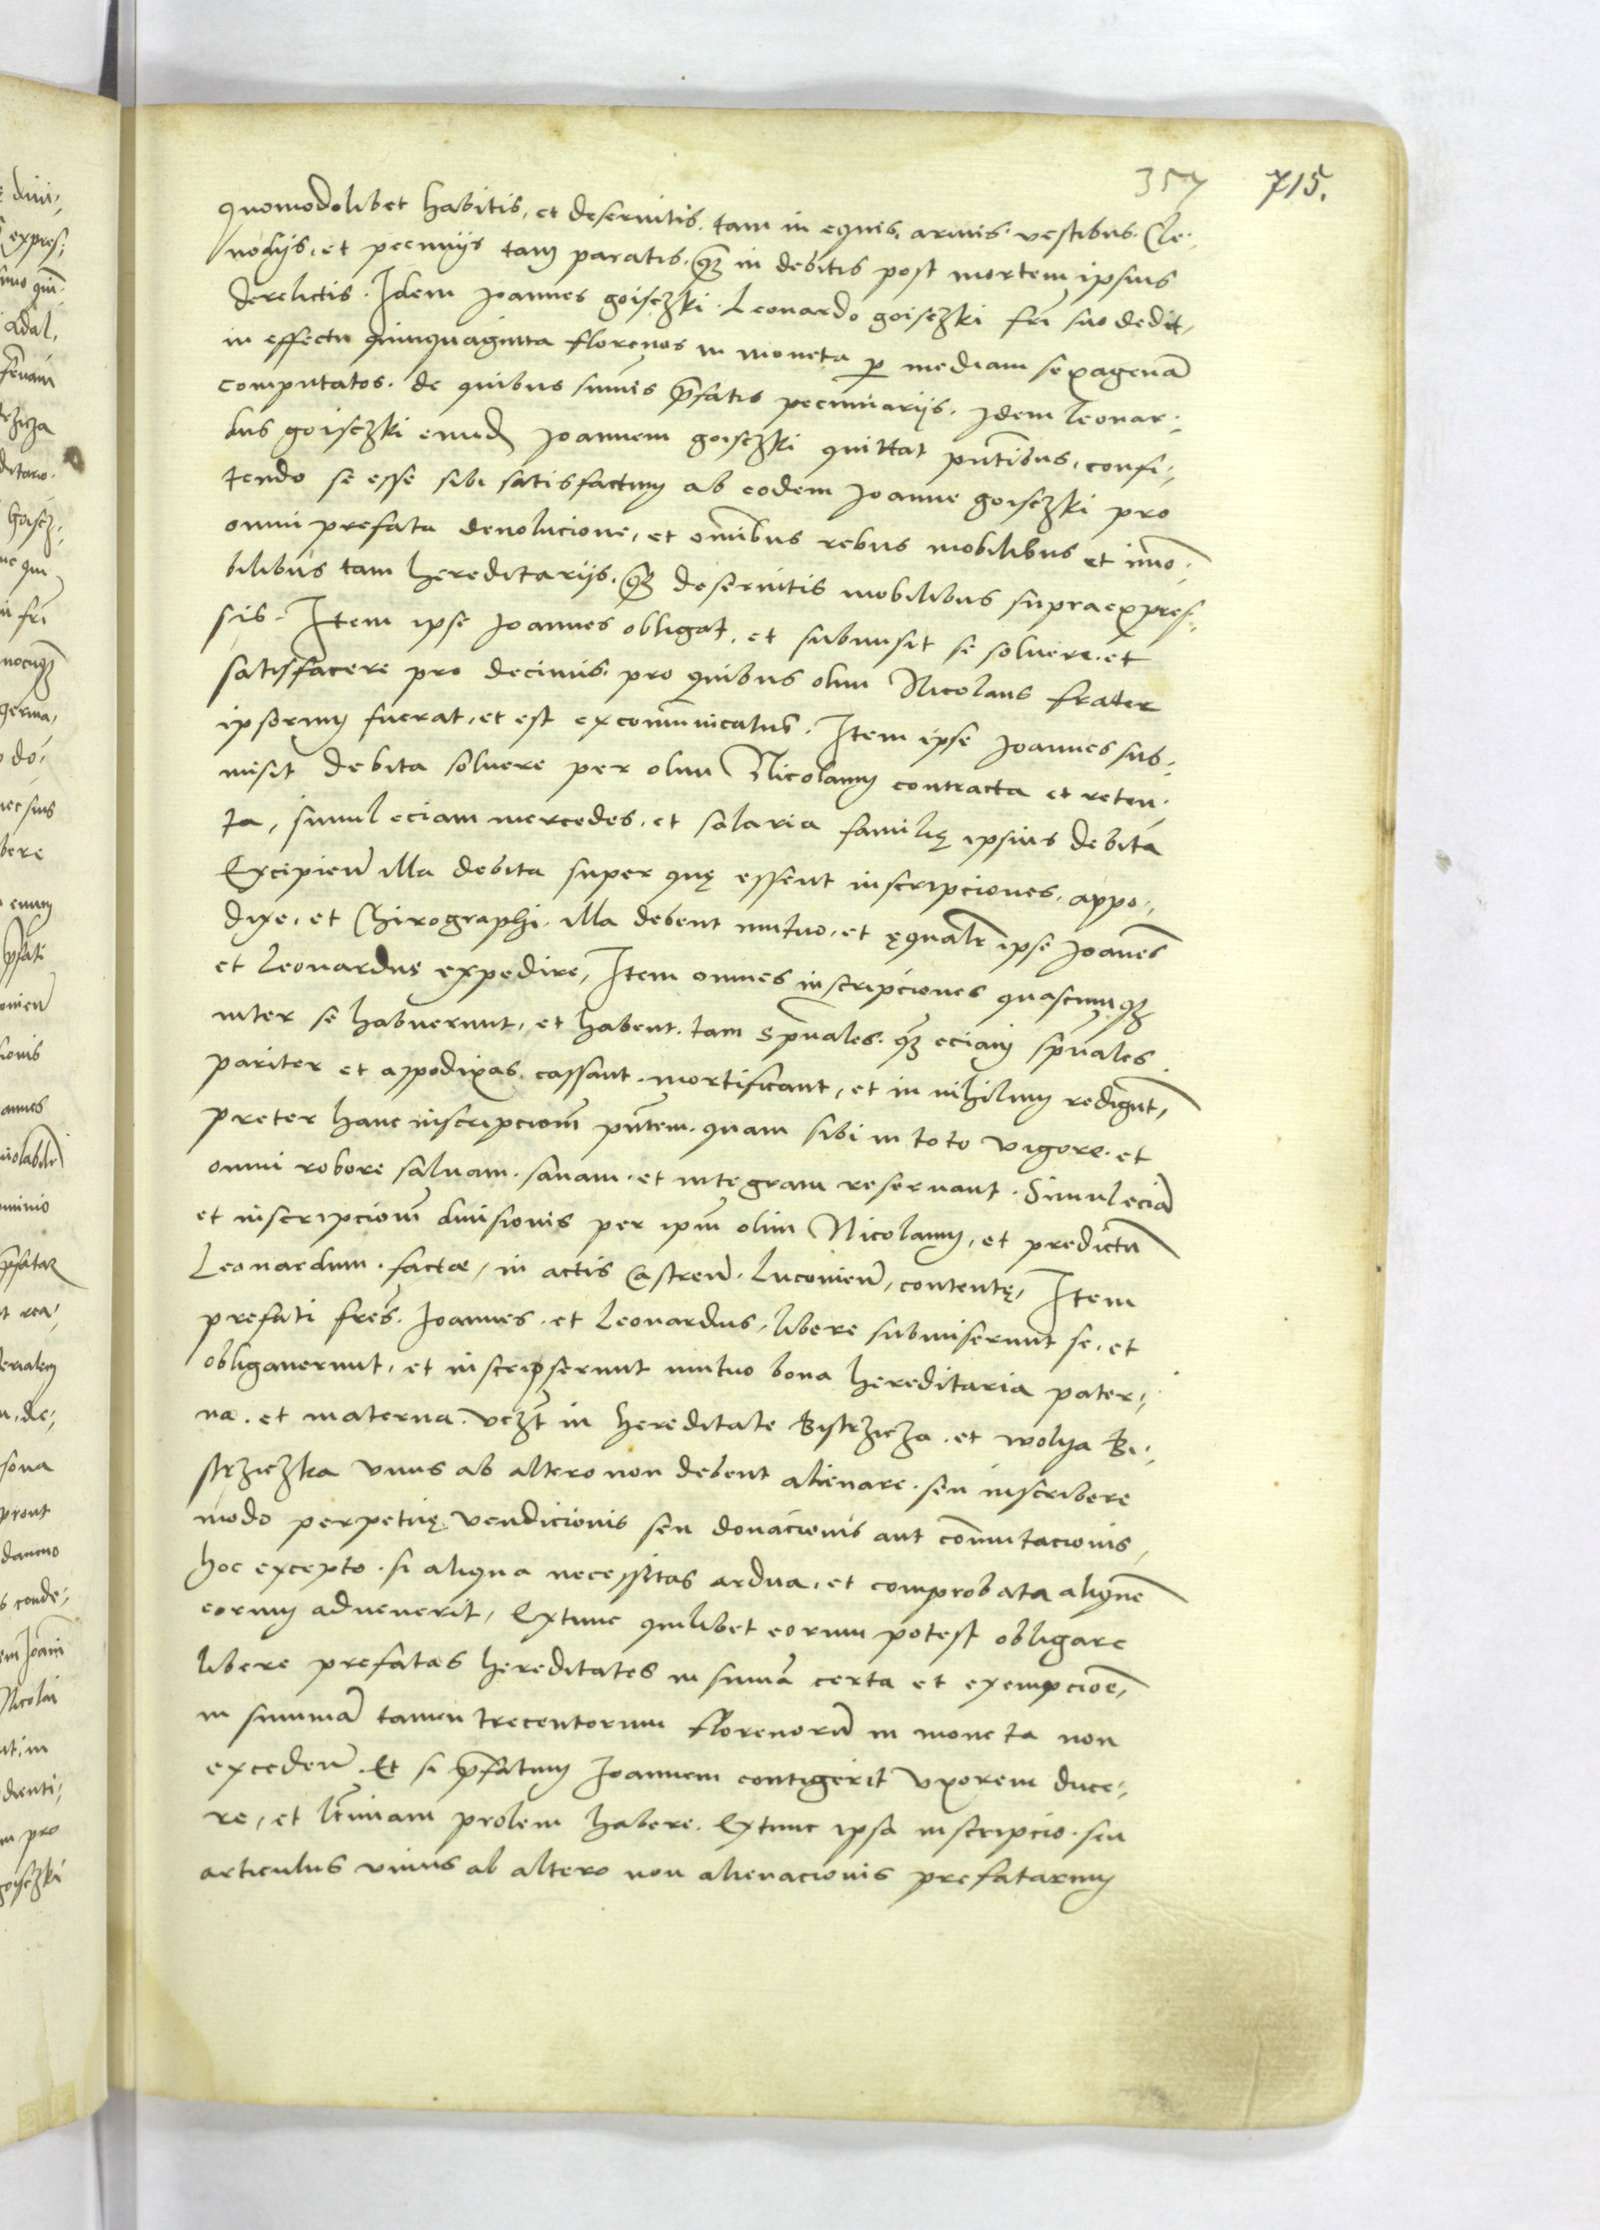 357 715.
quomodolibet habitis, et deservitis. tam in equis. armis. vestibus. Cle-
nodijs. et pecunijs tam paratis. q̃ in debitis post mortem ipsius
derelictis. Idem Joannes goisczki. Leonardo goisczki frı̃ suo dedit,
in effectu quinquaginta florenos in moneta p mediam sexagenã
computatos. de quibus sum̃is p̃fatis pecuniarijs. Idem Leonar-
dus goisczki eund̃ Joannem goisczki quittat pñtibus. confi-
tendo se esse sibi satisfactum ab eodem Joanne goisczki pro
omni prefata devolucione, et om̃ibus rebus mobilibus et im̃o-
bilibus tam hereditarijs. q̃ deservitis mobilibus supraexpres-
sis. Item ipse Joannes obligat. et submisit se solvere. et
satisfacere pro decimis. pro quibus olim Nicolaus frater
ipsorum fuerat. et est excom̃unicatus. Item ipse Joannes sub-
misit debita solvere per olim Nicolaum contracta et reten-
ta, simul eciam mercedes. et salaria familię ipsius debita
Excipieñ illa debita super quę essent inscripciones. appo-
dixe. et Chirographi. illa debent mutuo. et ęqualr̃ ipse Joañes
et Leonardus expedire, Item omnes inscripciones quascunq̃
inter se habuerunt, et habent. tam spũales. q̃ eciam spũales
pariter et appodixas. cassant. mortificant, et in nihilum redigũt,
preter hanc inscripcioñ pñtem. quam sibi in toto vigore. et
omni robore salvam. sanam. et integram reservant. Simul eciã
et inscripcioñ divisionis per ip̃m olim Nicolaum, et predictũ
Leonardum. factæ, in actis Castreñ. Lucovieñ, contentę, Item
prefati fr̃es. Joannes. et Leonardus, libere submiserunt se, et
obligaverunt, et inscripserunt mutuo bona hereditaria pater-
na. et materna. vcz̃t in hereditate Bistrzicza. et wolya Bi-
strziczka vnus ab altero non debent alienare. seu inscribere
modo perpetuę vendicionis seu donacionis aut com̃utacionis,
hoc excepto. si aliqua necessitas ardua, et comprobata aliqueñ
eorum advenerit, Extunc quilibet eorum potest obligare
libere prefatas hereditates in sum̃a certa et exempcioẽ,
in summã tamen trecentorum florenorũ in moneta non
excedeñ. Et si p̃fatum Joannem contigerit vxorem duce-
re, et ltĩmam prolem habere. Extunc ipsa inscripcio. seu
articulus vnius ab altero non alienacionis prefatarum